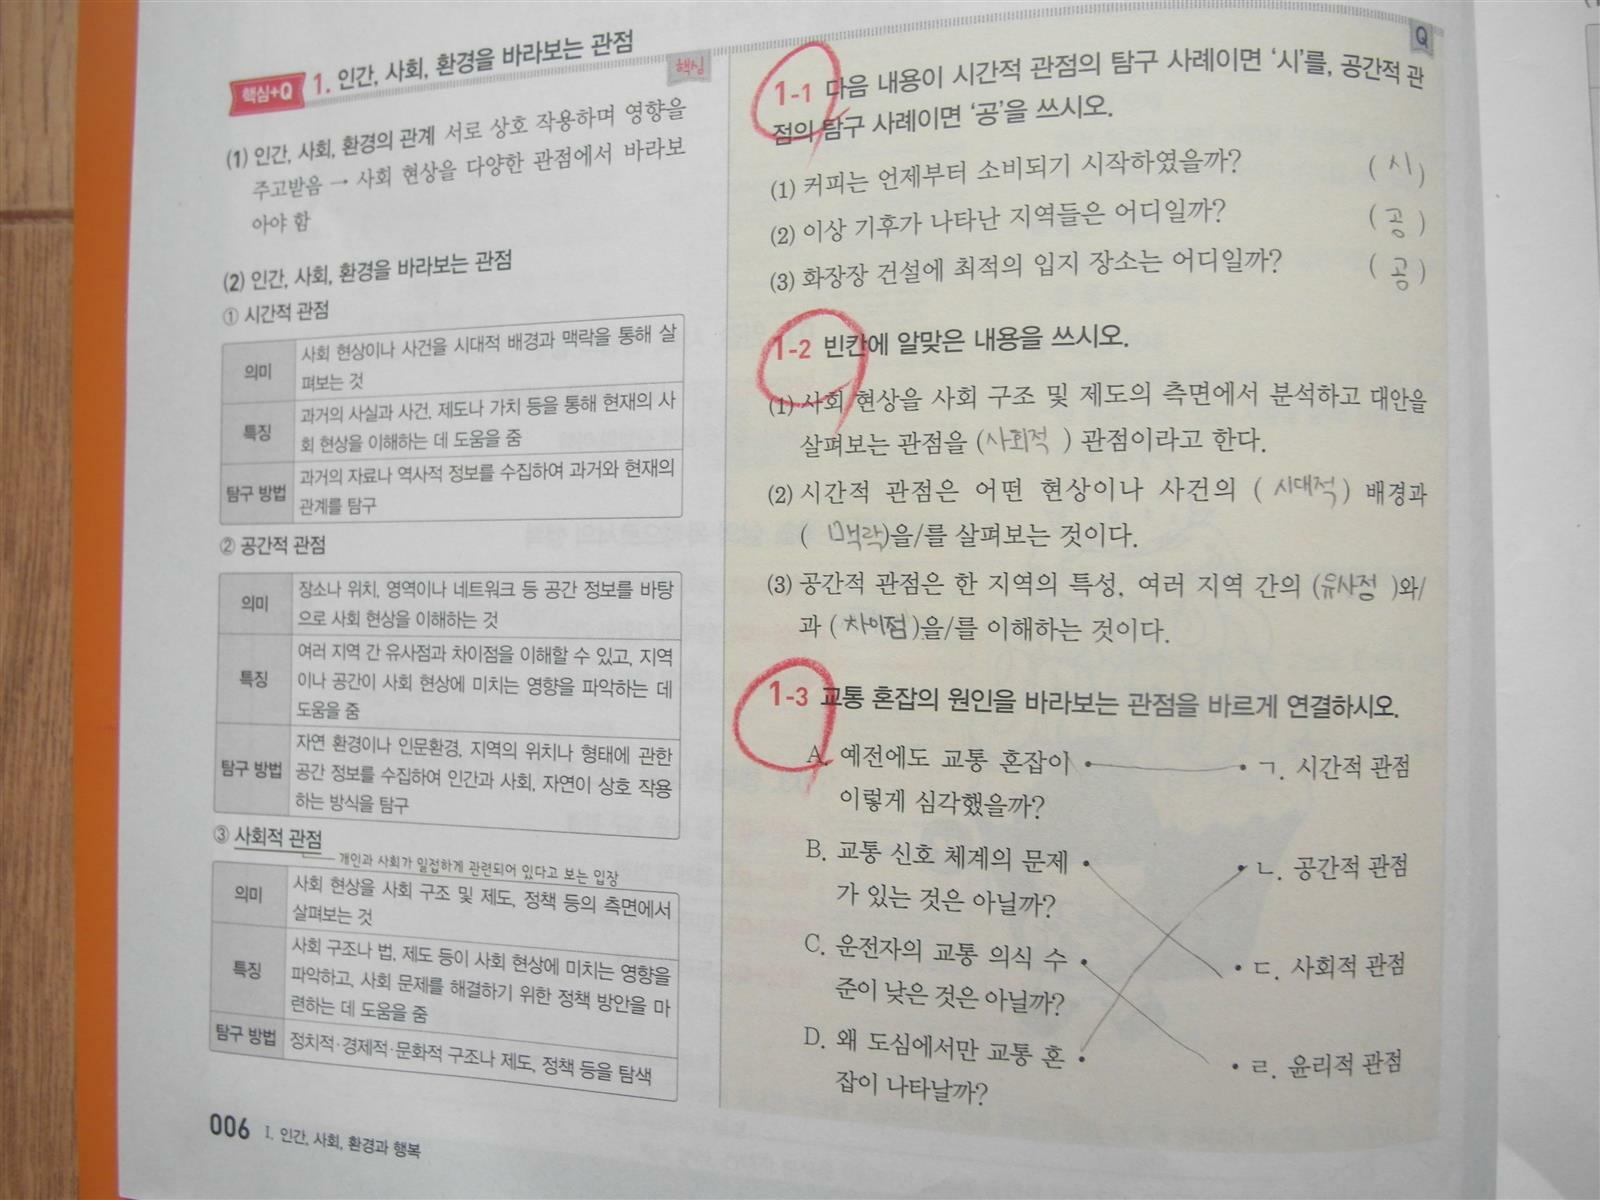 핵심+Q 1. 인간, 사회, 환경을 바라보는 관점
핵심
(1) 인간, 사회, 환경의 관계 서로 상호 작용하며 영향을
주고받음 → 사회 현상을 다양한 관점에서 바라보
아야 함
(2) 인간, 사회, 환경을 바라보는 관점
① 시간적 관점
의미 사회 현상이나 사건을 시대적 배경과 맥락을 통해 살
펴보는 것
특징 과거의 사실과 사건, 제도나 가치 등을 통해 현재의 사
회 현상을 이해하는 데 도움을 줌
탐구 방법 과거의 자료나 역사적 정보를 수집하여 과거와 현재의
관계를 탐구
② 공간적 관점
의미 장소나 위치, 영역이나 네트워크 등 공간 정보를 바탕
으로 사회 현상을 이해하는 것
특징 여러 지역 간 유사점과 차이점을 이해할 수 있고, 지역
이나 공간이 사회 현상에 미치는 영향을 파악하는 데
도움을 줌
탐구 방법 자연 환경이나 인문환경, 지역의 위치나 형태에 관한
공간 정보를 수집하여 인간과 사회, 자연이 상호 작용
하는 방식을 탐구
③ 사회적 관점
개인과 사회가 밀접하게 관련되어 있다고 보는 입장
의미 사회 현상을 사회 구조 및 제도, 정책 등의 측면에서
살펴보는 것
특징 사회 구조나 법, 제도 등이 사회 현상에 미치는 영향을
파악하고, 사회 문제를 해결하기 위한 정책 방안을 마
련하는 데 도움을 줌
탐구 방법 정치적·경제적·문화적 구조나 제도, 정책 등을 탐색
006 I. 인간, 사회, 환경과 행복
Q
1-1 다음 내용이 시간적 관점의 탐구 사례이면 ‘시’를, 공간적 관
점의 탐구 사례이면 ‘공’을 쓰시오.
(1) 커피는 언제부터 소비되기 시작하였을까? ( 시 )
(2) 이상 기후가 나타난 지역들은 어디일까? ( 공 )
(3) 화장장 건설에 최적의 입지 장소는 어디일까? ( 공 )
1-2 빈칸에 알맞은 내용을 쓰시오.
(1) 사회 현상을 사회 구조 및 제도의 측면에서 분석하고 대안을
살펴보는 관점을 (사회적 ) 관점이라고 한다.
(2) 시간적 관점은 어떤 현상이나 사건의 ( 시대적 ) 배경과
( 맥락 )을/를 살펴보는 것이다.
(3) 공간적 관점은 한 지역의 특성, 여러 지역 간의 (유사점 )와/
과 ( 차이점 )을/를 이해하는 것이다.
1-3 교통 혼잡의 원인을 바라보는 관점을 바르게 연결하시오.
A. 예전에도 교통 혼잡이 • • ㄱ. 시간적 관점
이렇게 심각했을까?
B. 교통 신호 체계의 문제 • • ㄴ. 공간적 관점
가 있는 것은 아닐까?
C. 운전자의 교통 의식 수 • • ㄷ. 사회적 관점
준이 낮은 것은 아닐까?
D. 왜 도심에서만 교통 혼 • • ㄹ. 윤리적 관점
잡이 나타날까?